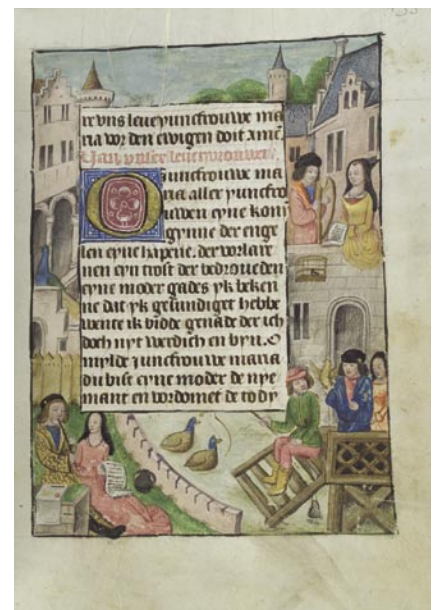 re vns leue yuncfrouwe ma
ria vor den ewigen doit amē
Van vnser leuer vrouwen
O iunckfrouwe ma
ria aller yuncfro
uwen eyne koni
gynne der enge
len eyne hapene. der vorlare
nen eyn trost der bedroueden
eyne moder gades yk beken
ne dat yk gesundiget hebbe
wente ik bidde genade der ich
doch nyt werdich en byn. O
mylde iuncfrouwe maria
du bist eyne moder de nye
mant en vordomet de to dy